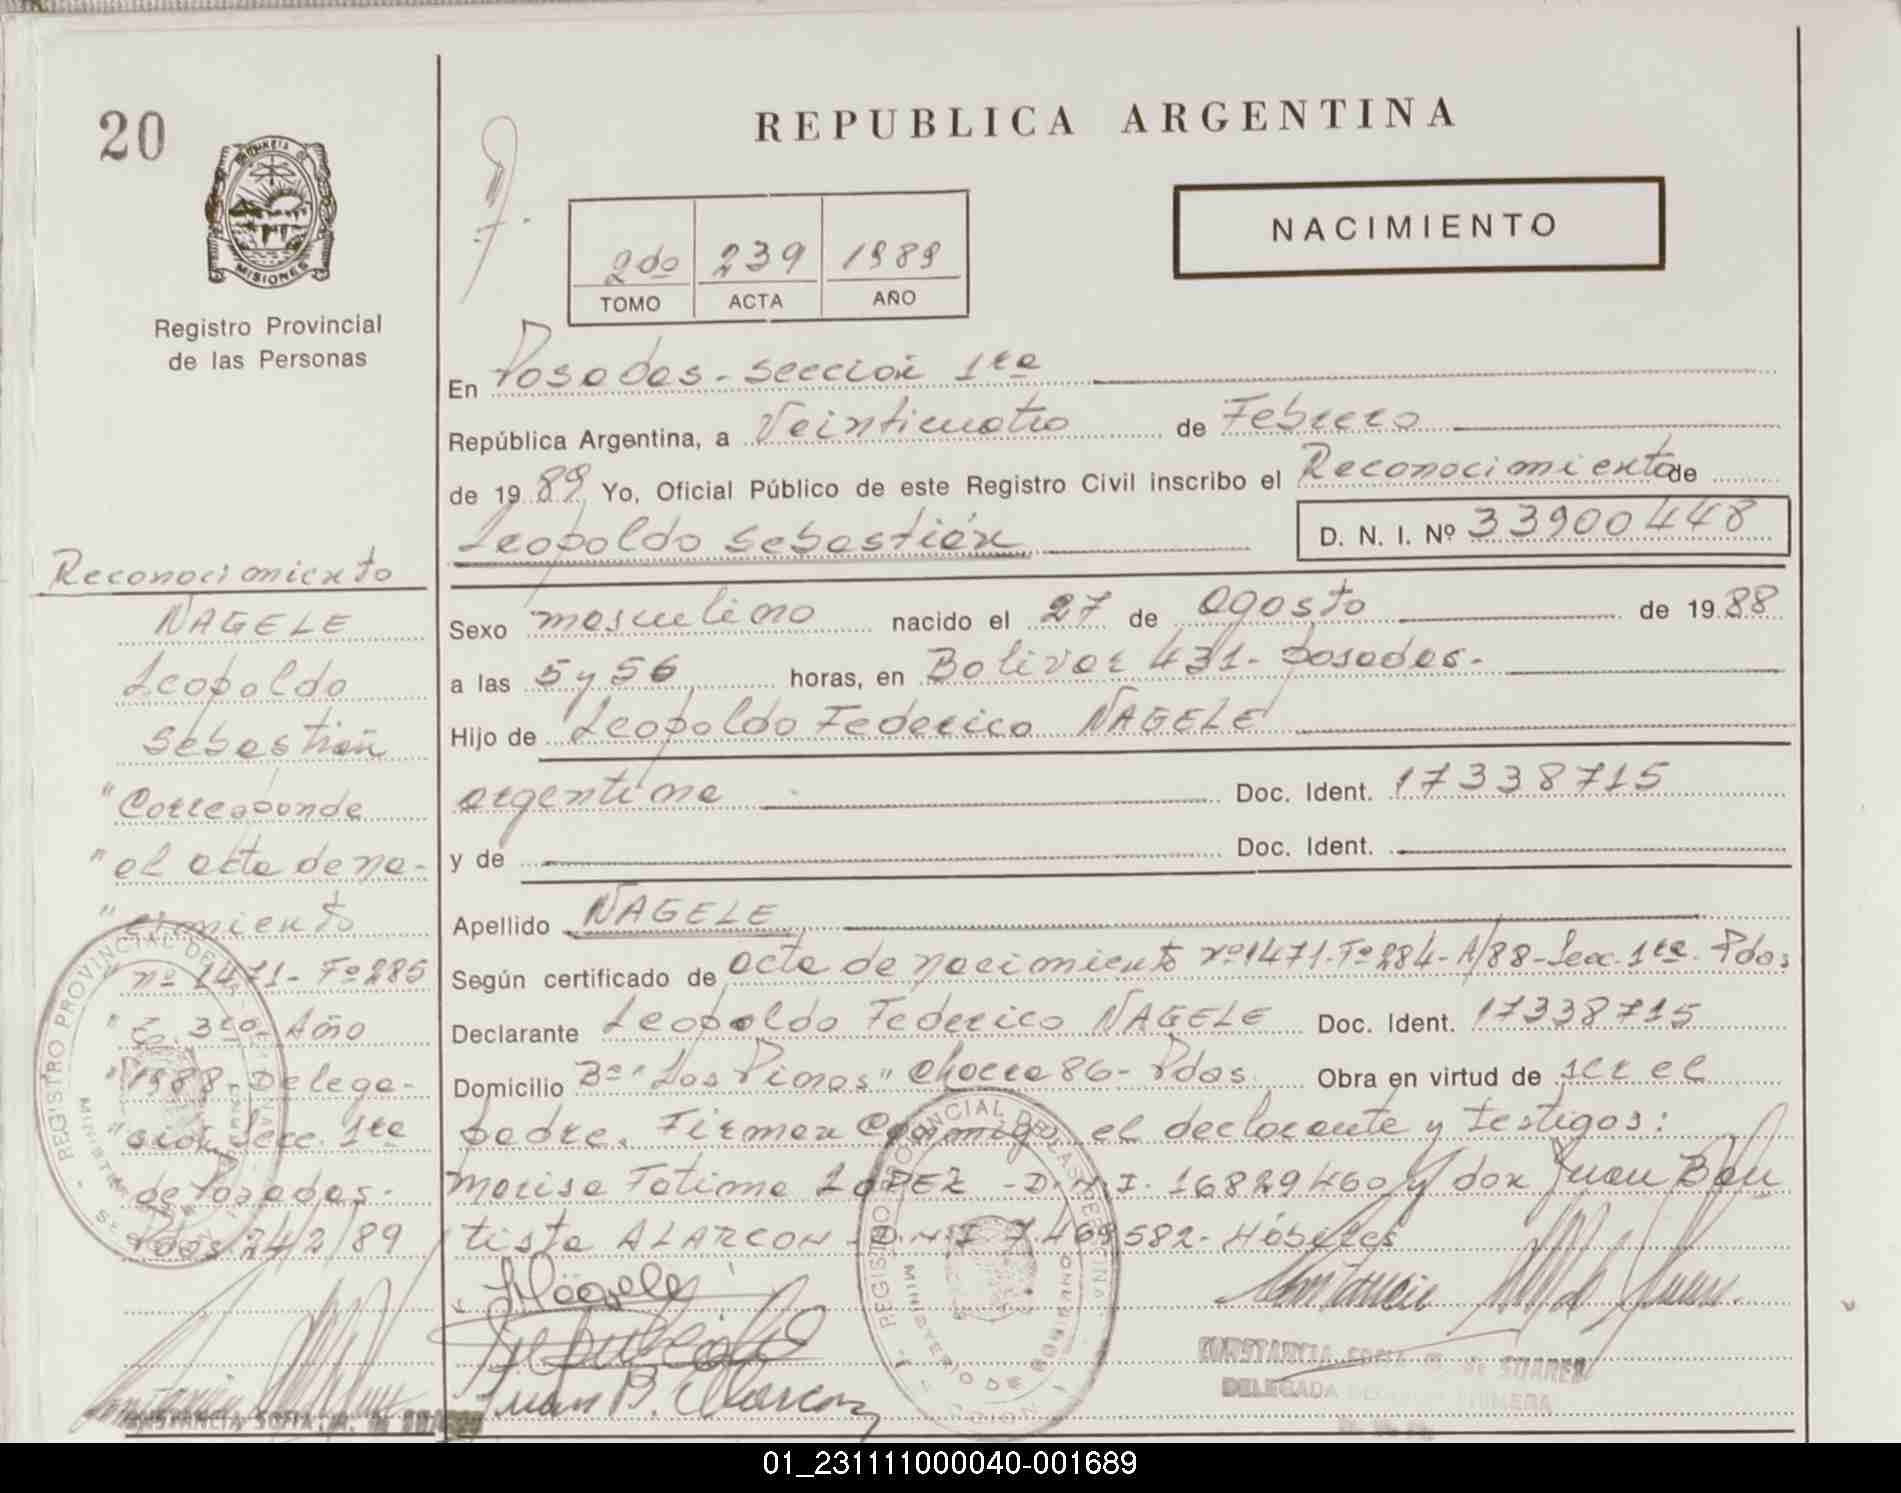 20
PROVINCIA DE
MISIONES
Registro Provincial
de las Personas
REPUBLICA ARGENTINA
NACIMIENTO
2do 239 1989
TOMO ACTA AÑO
En Posadas - sección 1ra
República Argentina, a Veinticuatro de Febrero
de 1989 Yo, Oficial Público de este Registro Civil inscribo el Reconocimiento de
Leopoldo Sebastián D. N. I. Nº 33900448
Sexo masculino nacido el 27 de agosto de 1988
a las 5 y 56 horas, en Bolivar 431 - Posadas -
Hijo de Leopoldo Federico NAGELE
argentina Doc. Ident. 17338715
y de Doc. Ident.
Apellido NAGELE
Según certificado de acta de nacimiento nº 1471-Fº 284-A/88-Secc. 1ra. Pdas
Declarante Leopoldo Federico NAGELE Doc. Ident. 17338715
Domicilio Bº "Los Pinos" Chacra 86 - Pdas. Obra en virtud de ser el
padre. Firman conmigo el declarante y testigos:
Marisa Fatima LOPEZ - D.N.I. 16829460 y don Juan Bau
tista ALARCON - D.N.I 7.469582 - Hábiles
LNägele
Juan B. Alarcon
CONSTANCIA SOFIA M. DE SUAREZ
DELEGADA PRIMERA
Reconocimiento
NAGELE
Leopoldo
Sebastián
"Corresponde
"el acta de na-
"cimiento
"nº 1471- Fº 285
"To. 3ro. Año
"1988-Delega-
"ción Secc. 1ra
de Posadas.
Pdas 24/2/89
CONSTANCIA SOFIA M. DE
REGISTRO PROVINCIAL DE LAS
MINISTERIO DE GOBIERNO
REGISTRO PROVINCIAL DE LAS
01_231111000040-001689